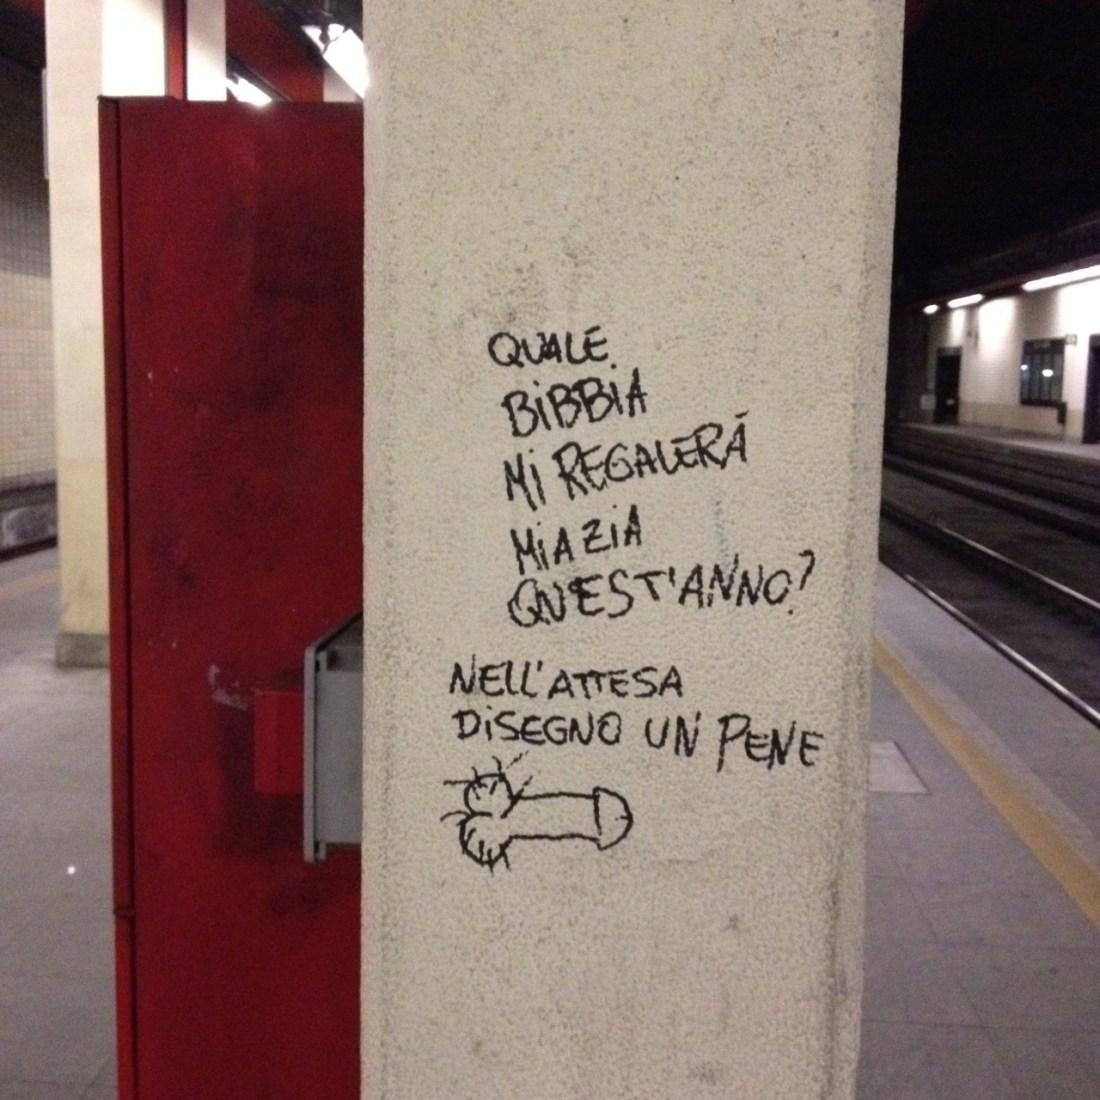 QUALE
BiBBiA
Mi REGALERÁ
MiA ZiA
QUEST'ANNO?
NELL'ATTESA
DiSEGNO UN PENE